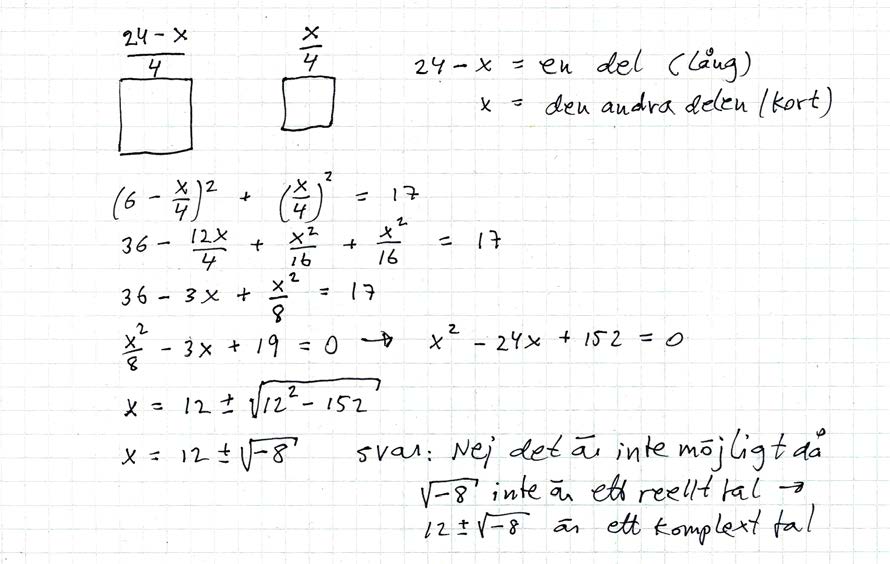 (24 - x)/4    x/4
24 - x = en del (lång)
x = den andra delen (kort)
(6 - x/4)² + (x/4)² = 17
36 - 12x/4 + x²/16 + x²/16 = 17
36 - 3x + x²/8 = 17
x²/8 - 3x + 19 = 0 → x² - 24x + 152 = 0
x = 12 ± √(12² - 152)
x = 12 ± √-8    svar: Nej det är inte möjligt då
√-8 inte är ett reellt tal →
12 ± √-8 är ett komplext tal